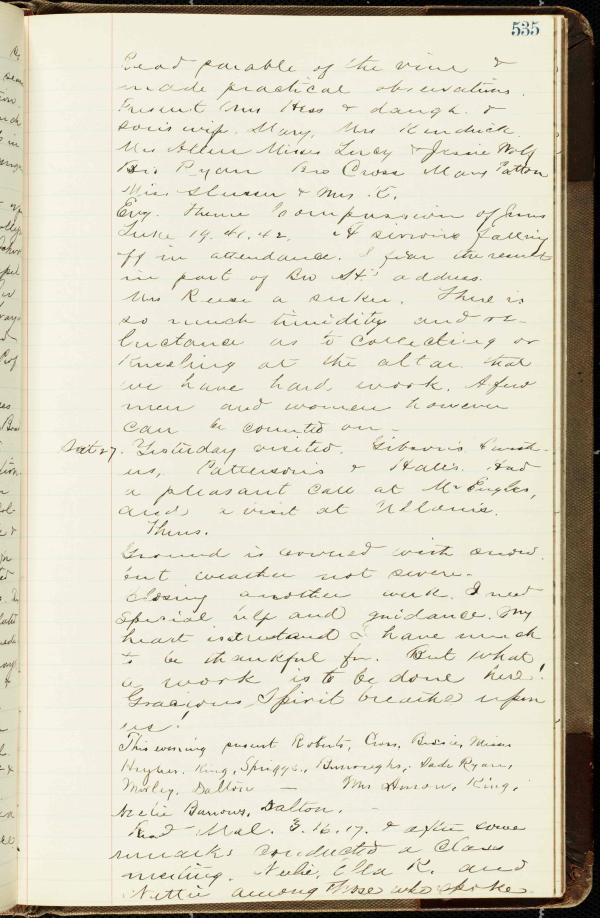 535
Read parable of the vine &
made practical observations.
Present Mrs Hess & daugh. &
son's wife. Mary, Mrs Kendrick
Mrs Allen Misses Lucy & Jessie Wolf
Bro Ryan Bro Cross Mary Patton
Miss Slusser & Mrs. K.
Evg. Theme Compassion of Jesus
Luke 19.41.42. A serious falling
off in attendance. I fear the result
in part of Bro St's address.
Mrs Reese a seeker. There is
so much timidity and re-
luctance as to collecting or
Kneeling at the altar that
we have hard work. A few
men and women however
can be counted on-
Sat 27. Yesterday visited. Gibson's
Patterson's & Hales. Had
a pleasant call at Mr Engles,
and a visit at
Thus.
Ground is covered with snow.
but weather not severe-
Closing another week. I need
special help and guidance. My
heart is & I have much
to be thankful for. But what
a work is to be done here!
Gracious Spirit breathe upon
us!
This evening present Roberts, Cross, Misses
Hughes, King, Spriggs, Burroughs, Sade Ryan,
Mosley, Dalton — Mrs King,
Nettie Burrows, Dalton. -
Read Mal. 3.16.17. & after some
remarks conducted a class
meeting. Ella K. and
Nettie among those who spoke